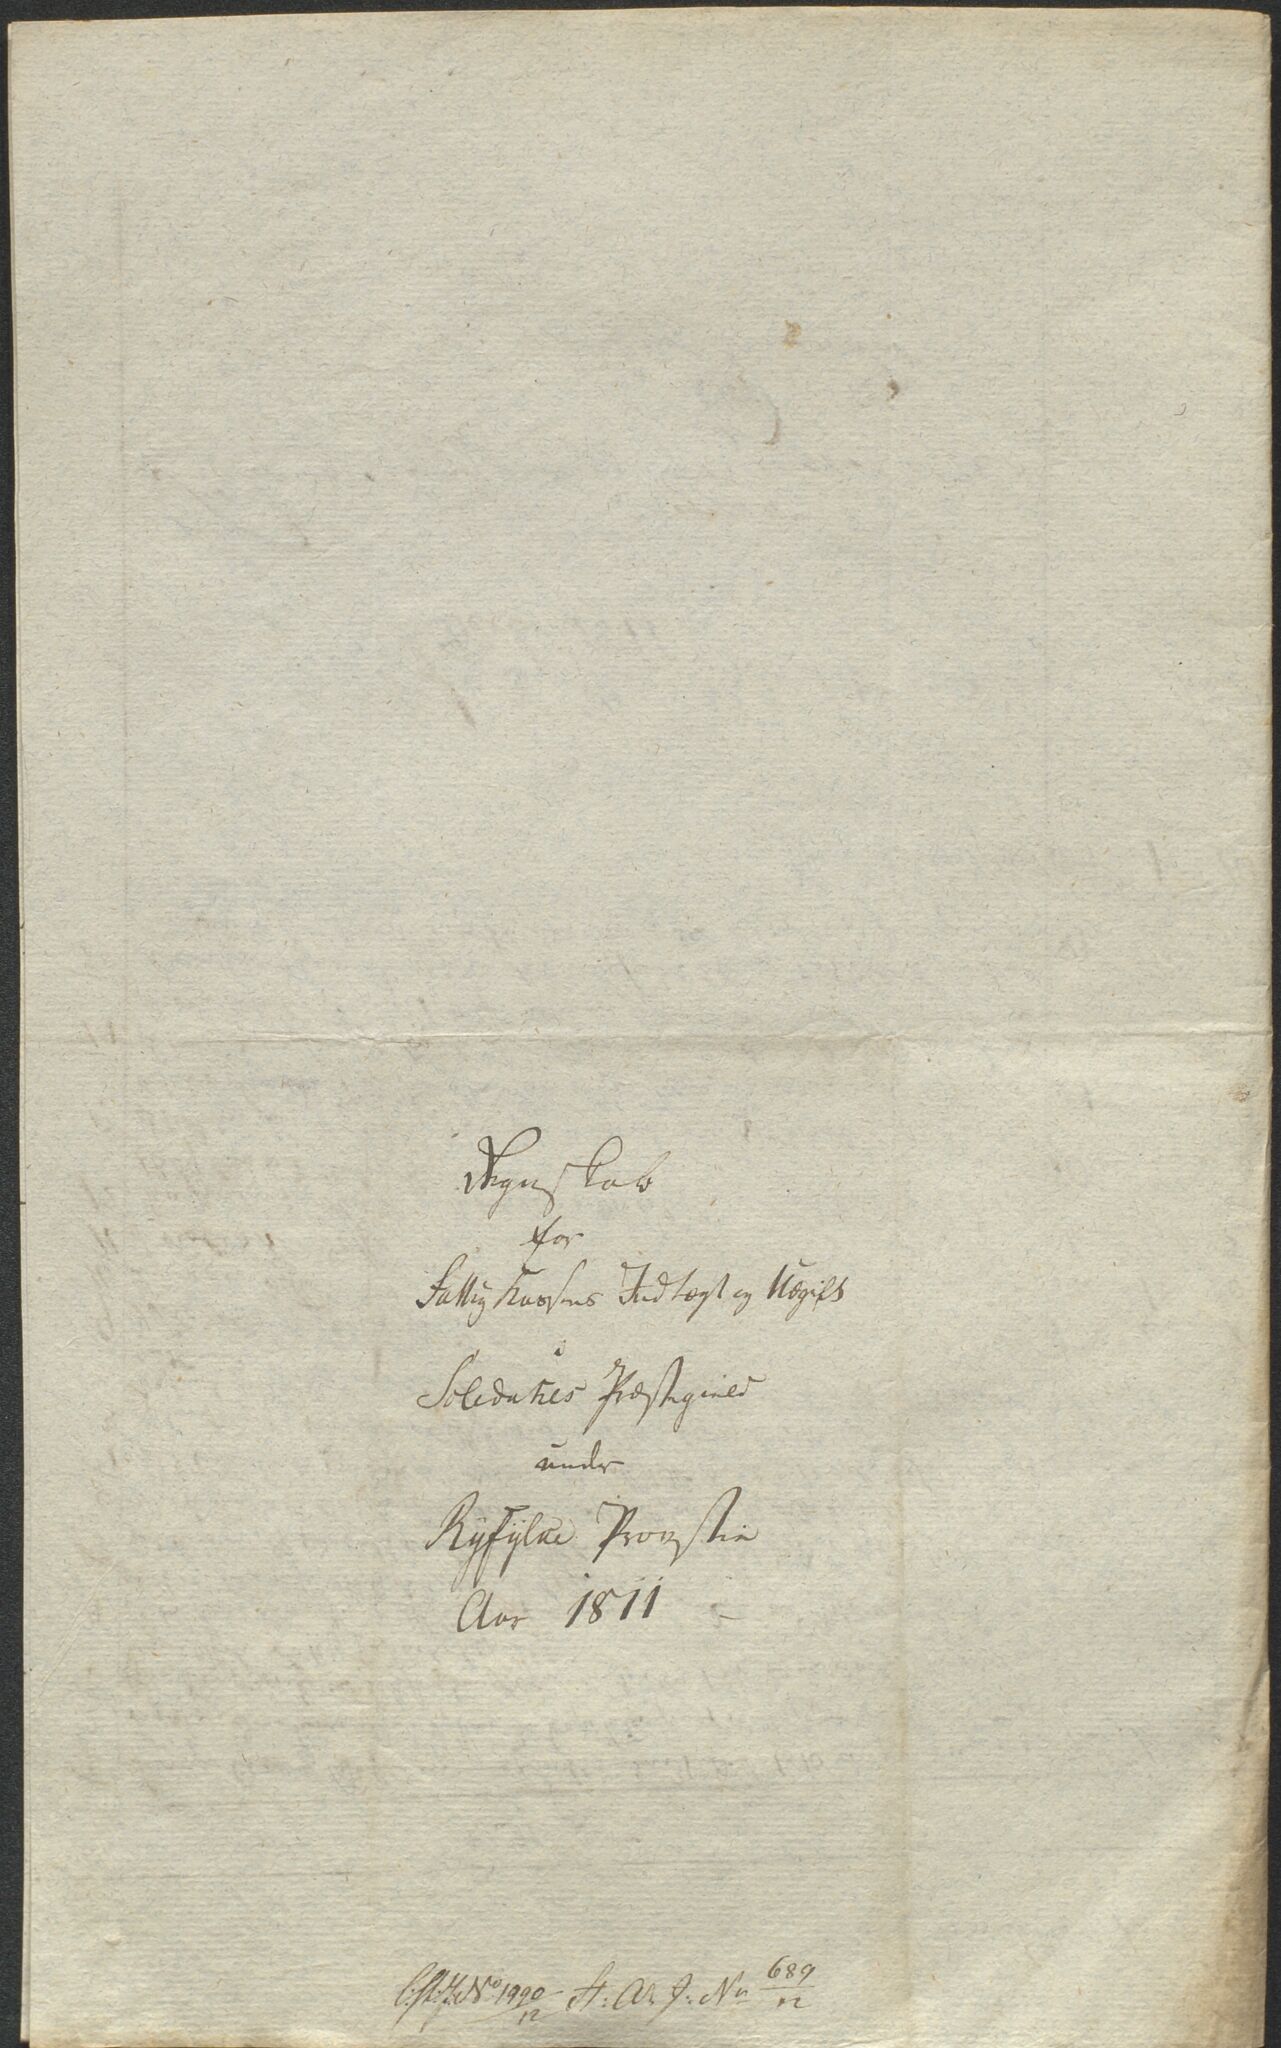 Regnskab
for
Fattig Kassens Indtægt og Udgift
i
Præstegield
under
Ryfylke Provstie
Aar 1811
No 1990/12 St: A: J: No 689/12